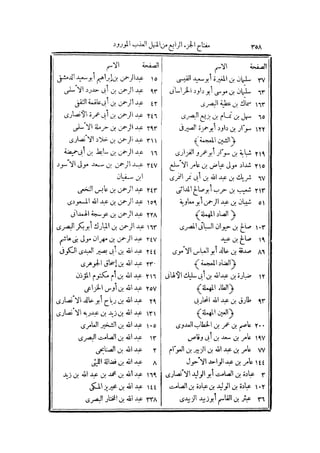 ٣٥٨ مفتاح الجزء الرابع من المنهل العذب المورود
الصفحة الاسم
٣٧ سليمان بن المغيرة أبو سعيد القيسى
٦٣ سليمان بن موسى أبو داود الخراسانى
١٦٣ سماك بن عطية البصرى
٦٥ سهل بن تمام بن بزيع البصرى
١٢٢ سوار بن داود أبو حمزة الصيرفى
﴿الشين المعجمة﴾
٢١٩ شبابة بن سوار أبو عمرو الفزارى
٢٤٥ شداد مولى عياض بن عامر الأسلع
٦٧ شريك بن عبد الله بن أبى نمر النمرى
٢١٣ شعيب بن حرب أبو صالح المدائنى
٥١ شيبان بن عبد الرحمن أبو معاوية
﴿الصاد المهملة﴾
١٠٣ صالح بن خيوان السبائى المصرى
١٩ صالح بن عبيد
٨٦ صدقة بن خالد أبو العباس الأموى
﴿الضاد المعجمة﴾
١٢ ضبارة بن عبد الله بن أبى سليك الألهانى
﴿الطاء المهملة﴾
٩٣ طارق بن عبد الله المحاربى
﴿العين المهملة﴾
٢٠٠ عاصم بن عمر بن الخطاب العدوى
١٩٧ عامر بن سعد بن أبى وقاص
٧٧ عامر بن عبد الله بن الزبير بن العوام
١٤٤ عامر بن عبد الواحد الأحول
٣ عبادة بن الصامت أبو الوليد الأنصارى
١٠٢ عبادة بن الوليد بن عبادة بن الصامت
٣٦ عبثر بن القاسم أبو زبيد الزبيدى
الصفحة الاسم
١٥ عبد الرحمن بن إبراهيم أبو سعيد الدمشقى
٩٣ عبد الرحمن بن أبى حدرد الأسلمى
٤٢ عبد الرحمن بن أبى علقمة الثقفى
٢٤٦ عبد الرحمن بن أبى عمرة الأنصارى
٢٩٣ عبد الرحمن بن حرملة الأسلمى
٣١١ عبد الرحمن بن خلاد الأنصارى
١٦ عبد الرحمن بن سابط بن أبى حميضة
٢٤٧ عبد الرحمن بن سعد مولى الأسود
ابن سفيان
٢٤٣ عبد الرحمن بن عابس النخعى
١٥٩ عبد الرحمن بن عبد الله المسعودى
٢٢٨ عبد الرحمن بن عوسجة الهمدانى
١٦٣ عبد الرحمن بن المبارك أبو بكر البصرى
٢٤٧ عبد الرحمن بن مهران مولى بنى هاشم
٢٤٧ عبد الله بن أبى بصير العبدى الكوفى
٢٣٠ عبد الله بن إسحاق الجوهرى
٢١٦ عبد الله بن أم مكتوم المؤذن
٢٥٧ عبد الله بن أوس الخزاعى
٢٩ عبد الله بن رباح أبو خالد الأنصارى
١٣١ عبد الله بن زيد بن عبد ربه الأنصارى
١٠٥ عبد الله بن الشخير العامرى
١٣ عبد الله بن الصامت البصرى
٣ عبد الله بن الصنابحى
٨ عبد الله بن فضالة الليثى
١٦٩ عبد الله بن محمد بن عبد الله بن زيد
١٤٤ عبد الله بن محيريز المكى
٣٣٨ عبد الله بن المختار البصرى